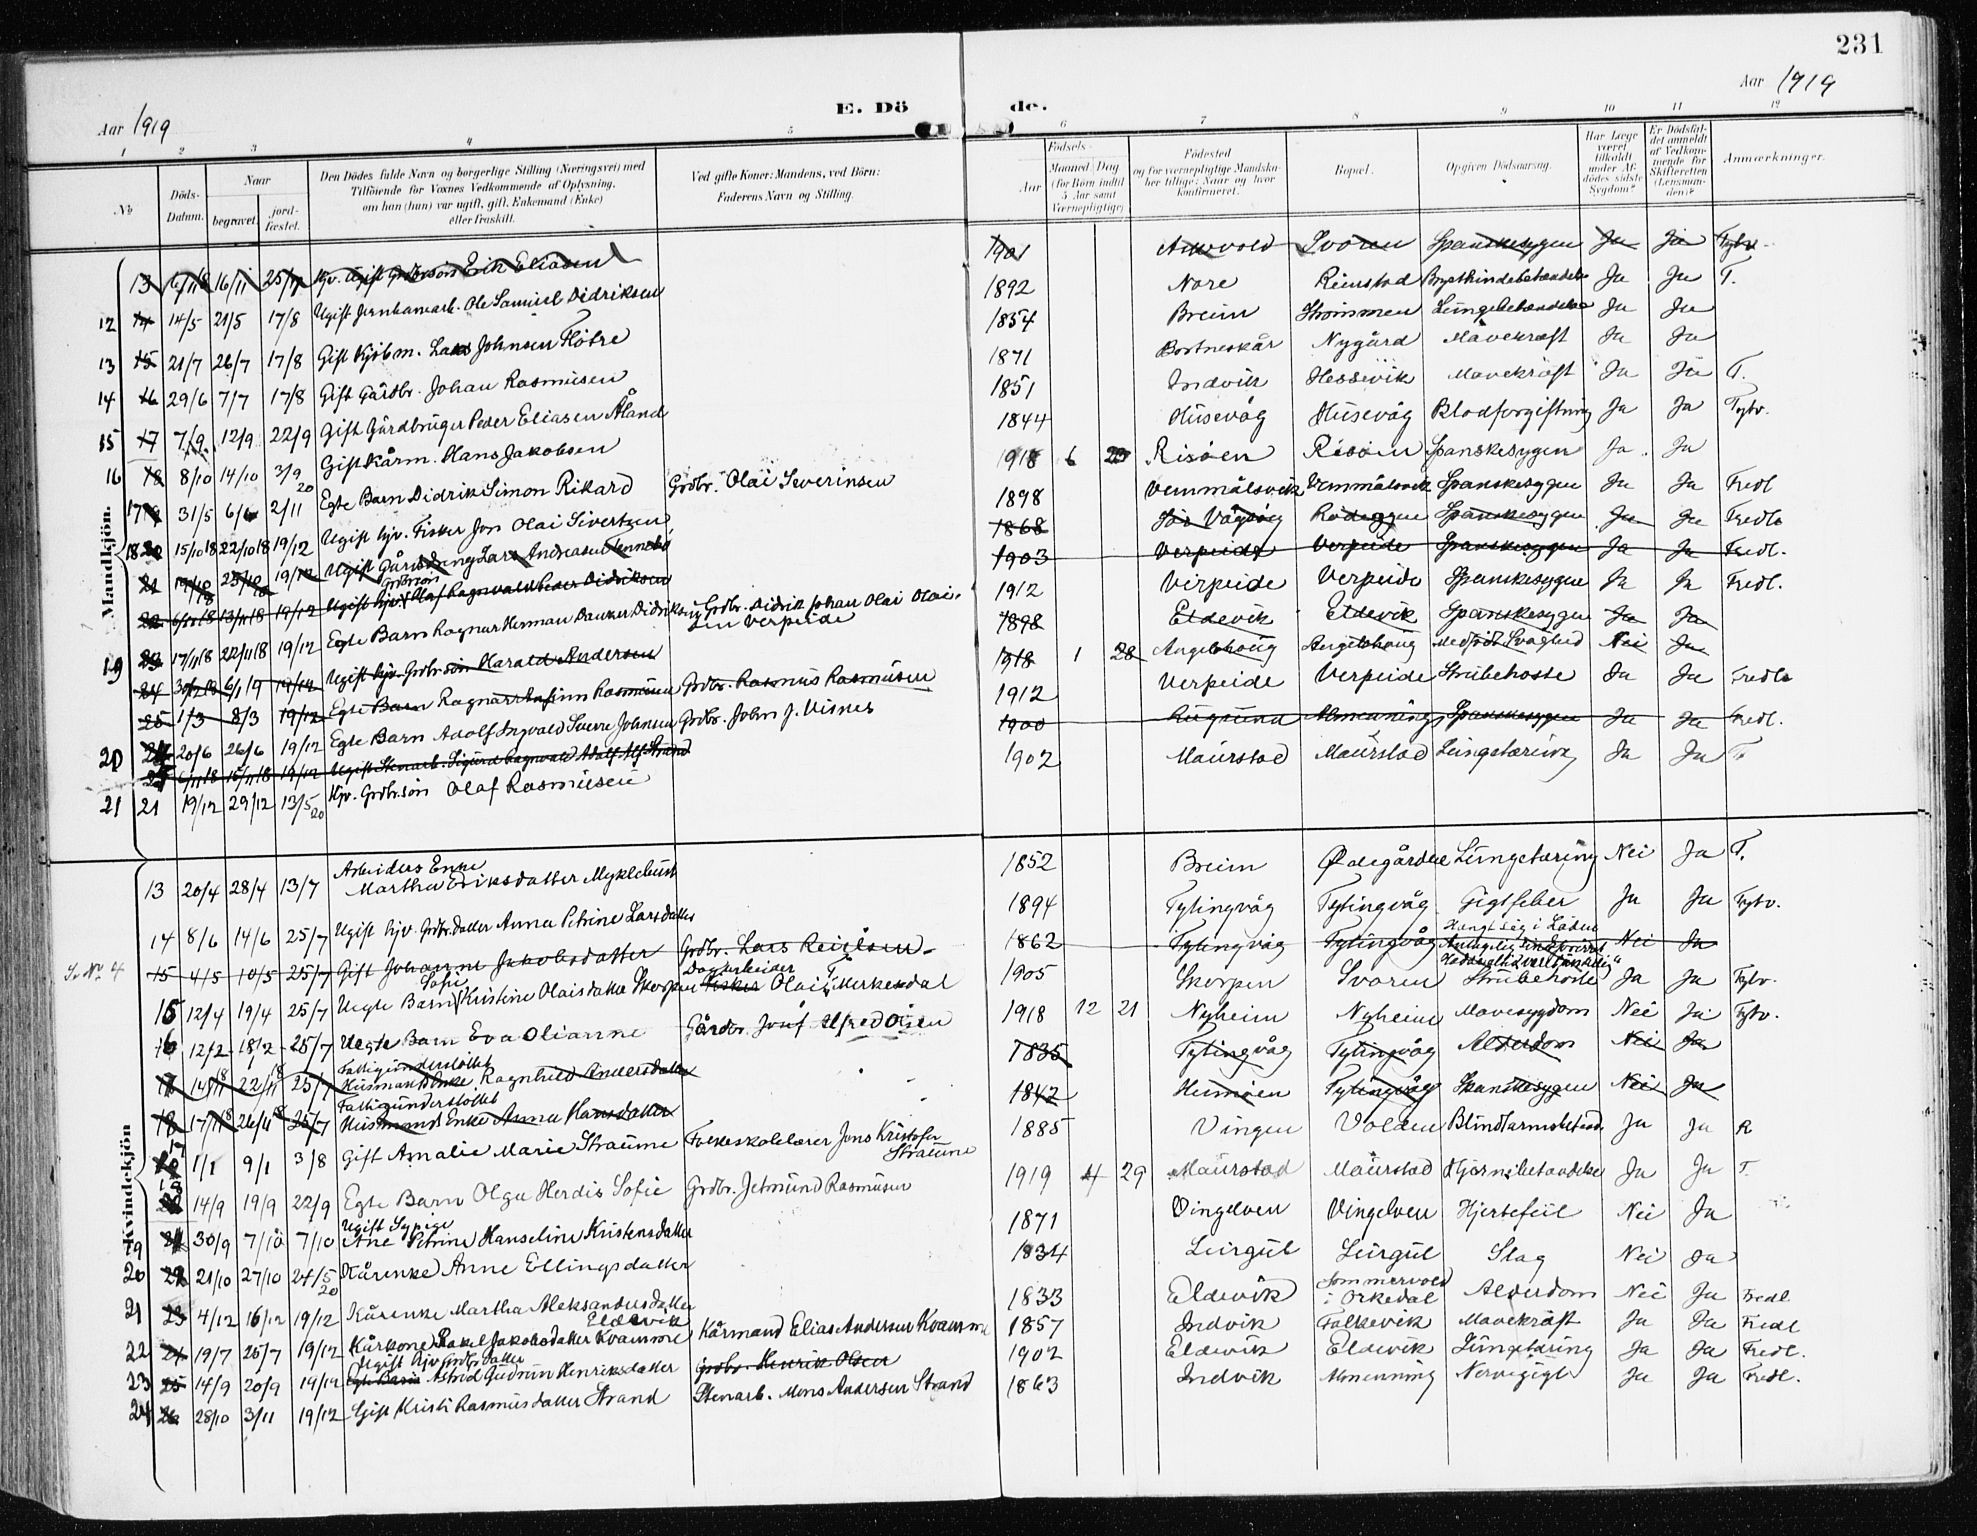 231
Aar 1919
E. Dö
de.
Aar 1919
1 2 3 4 5 6 7 8 9 10 11 12
No
Döds-Datum.
Naar
begravet.
jord-fæstet.
Den Dödes fulde Navn og borgerlige Stilling (Næringsvei) med
Tilföiende for Voxnes Vedkommende af Oplysning,
om han (hun) var ugift, gift, Enkemand (Enke)
eller fraskilt.
Ved gifte Koner: Mandens, ved Börn:
Faderens Navn og Stilling.
Födsels-
Aar
Maaned Dag
(for Börn indtil
5 Aar samt
Værnepligtige)
Födested
og for værnepligtige Mandska-
ber tillige: Naar og hvor
konfirmeret.
Bopæl.
Opgiven Dödsaarsag.
Har Læge
været
tilkaldt
under Af-
dödes sidste
Sygdom?
Er Dödsfal-
det anmeldt
af Vedkom-
mende for
Skifteretten
(Lensman-
den)?
Anmærkninger.
Mandkjön.
13 16/11 25/11 Kjv. Ugift Grdbrsön Erik Eliasen 1901 Askevold Svoren Spanskesygen Ja Ja Fylv.
12 14 14/5 21/5 17/8 Ugift Jernbanearb. Ole Samuel Didriksen 1892 Nore Rimstad Brysthindebetændelse Ja Ja T.
13 15 21/7 26/7 17/8 Gift Kjöbm. Lars Johnsen Flötre 1854 Breim Strömmen Lungebetændelse Ja Ja
14 16 29/6 7/7 17/8 Gift Gårdbr. Johan Rasmusen 1871 Bortneskår Nygård Mavekræft Ja Ja
15 17 7/9 12/9 22/9 Gift Gårdbruger Peder Eliasen Åland 1851 Indvik Hessevik Mavekræft Ja Ja T.
16 18 8/10 14/10 3/9 20 Gift Kårm. Hans Jakobsen 1844 Husevåg Husevåg Blodforgiftning Ja Ja Fylv.
17 19 31/5 6/6 2/11 Egte Barn Didrik Simon Rikard Grdbr. Olai Severinsen 1918 6 23 Risöen Risöen Spanskesygen Ja Ja
18 20 15/10 18 22/10 18 19/12 Ugift Kjv. Fisker Jon Olai Sivertsen 1898 Vemmålsvik Vemmålsvik Spanskesygen Ja Ja Fredl
21 19/10 18 25/10 18 19/12 Ugift Gårddreng Lars Andreasen Tennebö 1868 Sör Vågsöy Rödeggen Spanskesygen Ja Ja Fredl.
22 6/11 18 13/11 18 19/12 Ugift Kjv. Grdbrsön Olaf Ragnvald Peder Didriksen 1903 Verpeide Verpeide Spanskesygen Ja Ja Fredl.
19 23 17/11 18 22/11 18 19/12 Egte Barn Ragnar Herman Didriksen Grdbr. Didrik Johan Olai Olai-
sen Verpeide 1912 Verpeide Verpeide Spanskesygen Ja Ja Fredl.
24 30/12 18 6/1 19 19/12 Ugift Kjv. Grdbrsön Harald Andersen 1898 Eldevik Eldevik Spanskesygen Ja Ja
25 1/3 8/3 19/12 Egte Barn Ragnar Rasmusen Grdbr. Rasmus Rasmusen 1918 1 28 Angelshaug Angelshaug Medfödt Svaghed Nei Ja
20 20/6 26/6 19/12 Egte Barn Adolf Ingvald Sverre Johnsen Grdbr. John J. Visnes 1912 Verpeide Verpeide Strubehoste Ja Ja Fredl.
6/11 18 15/11 18 19/12 Ugift Stenarb. Sigurd Ragnvald Adolf Alf Strand 1900 Rugsund Almenning Spanskesygen Ja Ja Fredl.
21 21 19/12 29/12 13/5 20 Kjv. Grdbr.sön Olaf Rasmusen 1902 Maurstad Maurstad Lungetæring Ja Ja T.
Kvindekjön
13 20/4 28/4 13/7 Arbeiders Enke
Martha Eriksdatter Myklebust 1852 Breim Ödegården Lungetæring Nei Ja T.
14 8/6 14/6 25/7 Ugift Kjv. Grdbr.datter Anna Petrine Larsdatter 1894 Tytingvåg Tytingvåg Gigtfeber Ja Ja Fylv.
Se No 4 15 4/5 10/5 25/7 Gift Johanne Jakobsdatter Grdbr. Lars Reiersen 1862 Tytingvåg Tytingvåg Hængt sig i Laden Nei Ja
15 12/4 19/4 25/7 Uegte Barn Sofie Kristine Olaisdatter Skorpen Dagarbeider Olai Merkesdal 1905 Skorpen Svoren Strubehoste Ja Ja Fylv.
16 12/2 18/2 25/7 Uegte Barn Eva Olianne Gårdbr. Josef Alfred Olsen 1918 12 21 Nyheim Nyheim Mavesygdom Nei Ja Fylv.
17 14/11 18 22/11 18 25/7 Fattigunderstöttet
Husmands Enke Ragnhild Andersdatter 1835 Tytingvåg Tytingvåg Alderdom Nei Ja
18 17/11 18 26/11 18 25/7 Fattigunderstöttet
Husmands Enke Anna Hansdatter 1842 Husöen Tytingvåg Spanskesygen Nei Ja
17 1/1 9/1 3/8 Gift Amalie Marie Straume Folkeskolelærer Jens Kristofer
Straume 1885 Vingen Volden Blindtarmsbetænd. Ja Ja R
18 14/9 19/9 22/9 Egte Barn Olga Herdis Sofie Grdbr. Jetmund Rasmusen 1919 4 29 Maurstad Maurstad Hjernebetændelse Ja Ja T.
19 21 30/9 7/10 7/10 Ugift Sypige
Ane Petrine Hanseline Kristensdatter 1871 Vingelven Vingelven Hjertefeil Nei Ja
20 22 21/10 27/10 24/5 20 Kårenke Anne Ellingsdatter 1834 Leirgul Leirgul Slag Nei Ja
21 23 4/12 16/12 19/12 Kårenke Martha Aleksandersdatter
Eldevik 1833 Eldevik Sommervold
i Orkedal Alderdom Nei Ja Fredl
22 24 19/7 25/7 19/12 Kårkone Rakel Jakobsdatter Kvamme Kårmand Elias Andersen Kvamme 1857 Indvik Falkevik Mavekræft Ja Ja Fredl
23 25 14/9 20/9 19/12 Ugift Kjv. Grdbr.datter
Egte Barn Astrid Gudrun Henriksdatter Grdbr. Henrik Olsen 1902 Eldevik Eldevik Lungetæring Ja Ja Fredl.
24 26 28/10 3/11 19/12 Gift Kristi Rasmusdatter Strand Stenarb. Mons Andersen Strand 1863 Indvik Almenning Nervegigt Ja Ja Fredl.